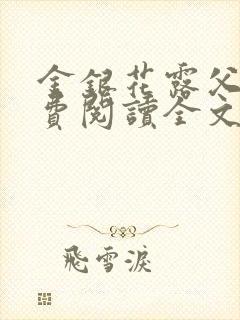 金銀花露父
費閱讀全文
飛雪淚